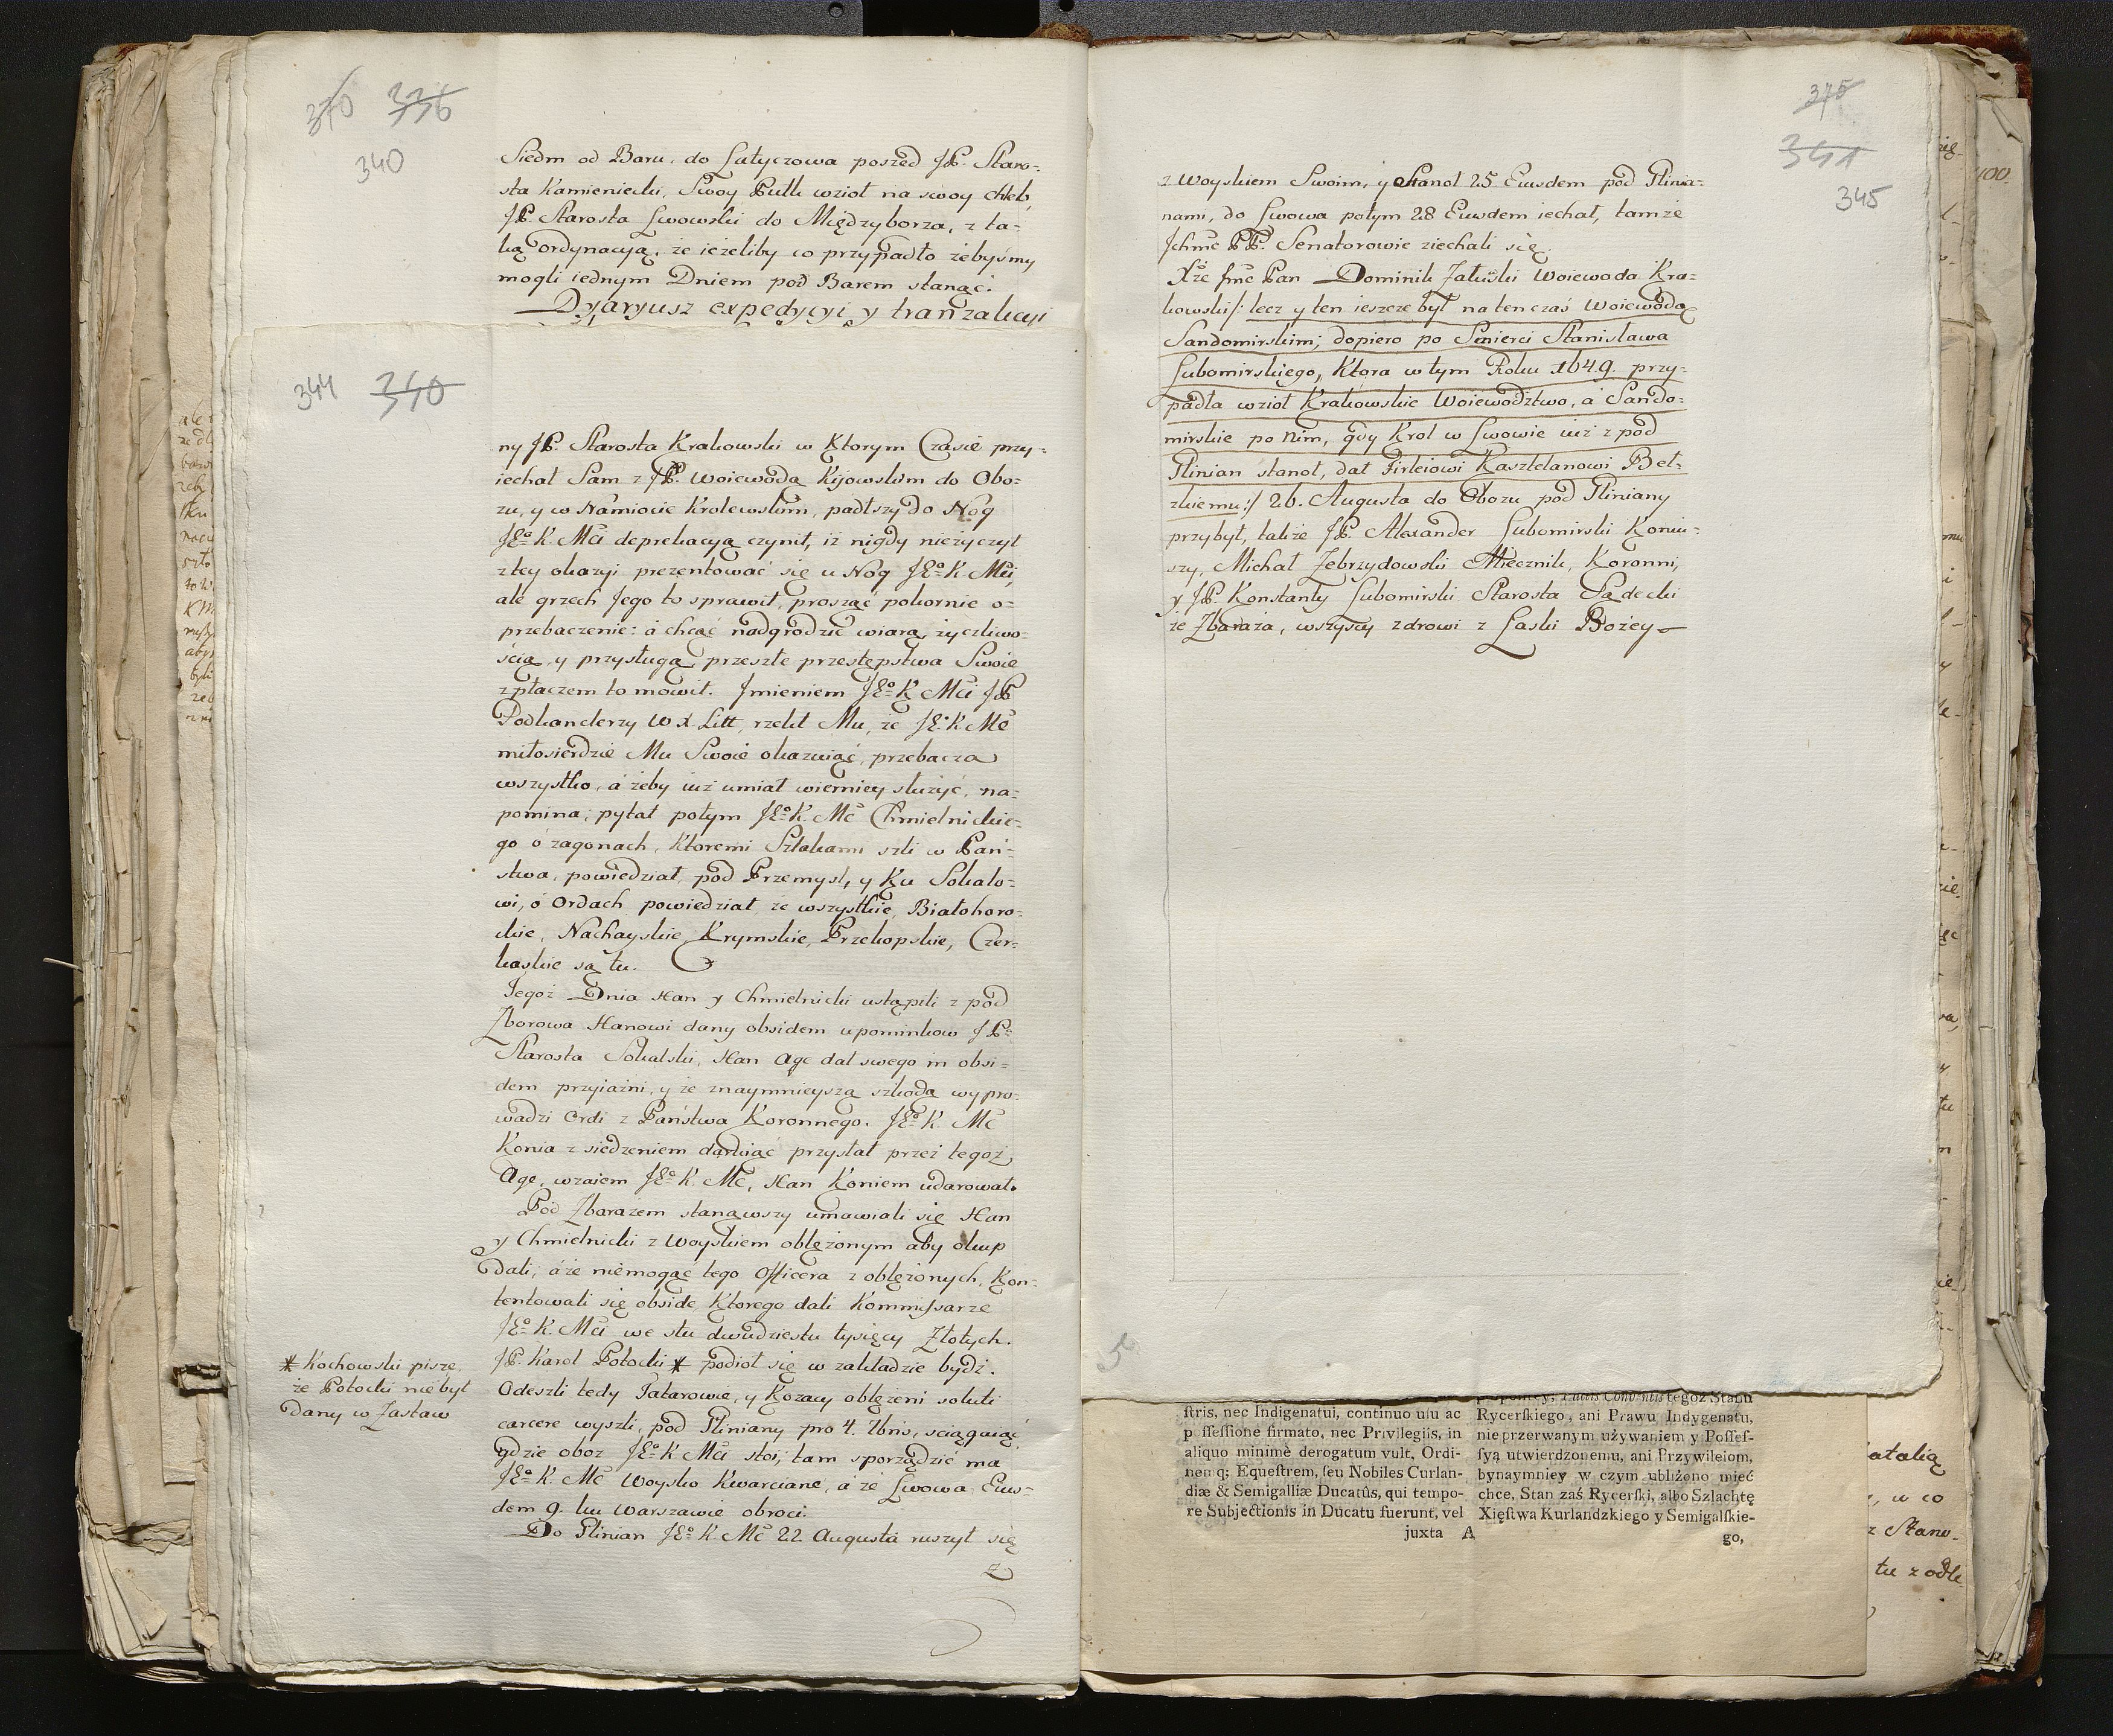 370 336
340
Siedm od Baru, do Latyczowa poszed JP. Staro-
sta Kamieniecki, Swoy Pułk wzioł na swoy chleb,
JP. Starosta Lwowski do Międzyborza, z ta-
ką ordynacyą, że ieżeliby co przypadło żebyśmy
mogli iednym Dniem pod Barem stanąć.
Dyaryusz expedycyi y tranzakcyi
344 340
ny JP. Starosta Krakowski w Ktorym Czasie przy-
iechał Sam z JP. Woiewodą Kijowskim do Obo-
zu, y w Namiocie Krolewskim, padłszy do Nog
JEº K. Mći deprekacyą czynił, iż nigdy nieżyczył
z tey okazyi prezentować się u Nog JEº K Mći,
ale grzech Jego to sprawił, prosząc pokornie o-
przebaczenie: á chcąc nadgrodzić wiarą, życzliwo-
ścią, y przysługą przeszłe przestępstwa Swoie
z płaczem to mowił. Jmieniem JEº K Mći JP
Podkanclerzy W. X. Litt, rzekł Mu, że JEº K. Mć
miłosierdzie Mu Swoie okazuiąć, przebacza
wszystko, á żeby iuż umiał wierniey służyć, na-
pomina; pytał potym JEº K. Mć Chmielnickie-
go ó zagonach, Ktoremi Szlakami szli w Pań-
stwa, powiedział, pod Przemysl, y Ku Sokalo-
wi, ó Ordach powiedział, że wszystkie, Białohoro-
dkie, Nahayskie, Krymskie, Przekopskie, Czer-
kaskie są tu.
Tegoż Dnia Han y Chmielnicki ustąpili z pod
Zborowa Hanowi dany obsidem upominkow JP.
Starosta Sokalski, Han Age dał swego in obsi-
dem przyiaźni, y że znaymnieyszą szkodą wypro-
wadzi Ordi z Państwa Koronnego. JEº K. Mć
Konia z siedzeniem daruiąć przysłał przez tegoż
Age, wzaiem JEº K. Mć, Han Koniem udarował.
Pod Zbarażem stanąwszy umawiali się Han
y Chmielnicki z Woyskiem oblężonym aby okup
dali, áże niemogąc tego Officera z oblężonych, Kon-
tentowali się obside, Ktorego dali Kommissarze
JEº K. Mći we stu dwudziestu tysięcy Złotych.
JP. Karol Potocki * podioł się w zakładzie bydź.
* Kochowski pisze,
że Potocki nie był
Dany w Zastaw
Odeszli tedy Tatarowie, y Kozacy oblężeni soluti
carcere wyszli, pod Gliniany pro 4. 7bris, sciągaiąć
gdzie oboz JEº K Mći stoi, tam sporządzić ma
JEº K. Mć Woysko Kwarciane, a ze Lwowa Eius-
dem 9. ku Warszawie obroci.
Do Glinian JEº K. Mć 22 Augusta ruszył się
z
375
341
345
z Woyskiem Swoim, y Stanoł 25 Eiusdem pod Glinia-
nami, do Lwowa potym 28 Eiusdem iechał, tamże
Jchmć PP. Senatorowie ziechali się.
Xże Jmć Pan Dominik Zasławski Woiewoda Kra-
kowski /: lecz y ten ieszcze był na ten czas Woiewodą
Sandomirskim, dopiero po Smierci Stanisława
Lubomirskiego, Ktora w tym Roku 1649. przy-
padła wzioł Krakowskie Woiewodztwo, á Sando-
mirskie po Nim, gdy Krol w Lwowie iuż z pod
Glinian stanoł, dał Firleiowi Kasztelanowi Beł-
zkiemu :/ 26. Augusta do Obozu pod Gliniany
przybył, także JP. Alexander Lubomirski Koniu-
szy, Michał Zebrzydowski Miecznik, Koronni,
y JP. Konstanty Lubomirski Starosta Sądecki
ze Zbaraża, wszyscy zdrowi z Łaski Bożey
stris, nec Indigenatui, continuo usu ac
p ssessione firmato, nec Privilegiis, in
aliquo minimè derogatum vult, Ordi-
nemq; Equestrem, seu Nobiles Curlan-
diæ & Semigalliæ Ducatûs, qui tempo-
re Subjectionis in Ducatu fuerunt, vel
juxta A
Pactis Conventis tegoż Stanu
Rycerskiego, ani Prawu Indygenatu,
nieprzerwanym używaniem y Posses-
syą utwierdzonemu, ani Przywileiom,
bynaymniey w czym ubliżono mieć
chce, Stan zaś Rycerski, albo Szlachtę
Xięstwa Kurlandzkiego y Semigalskie-
go,